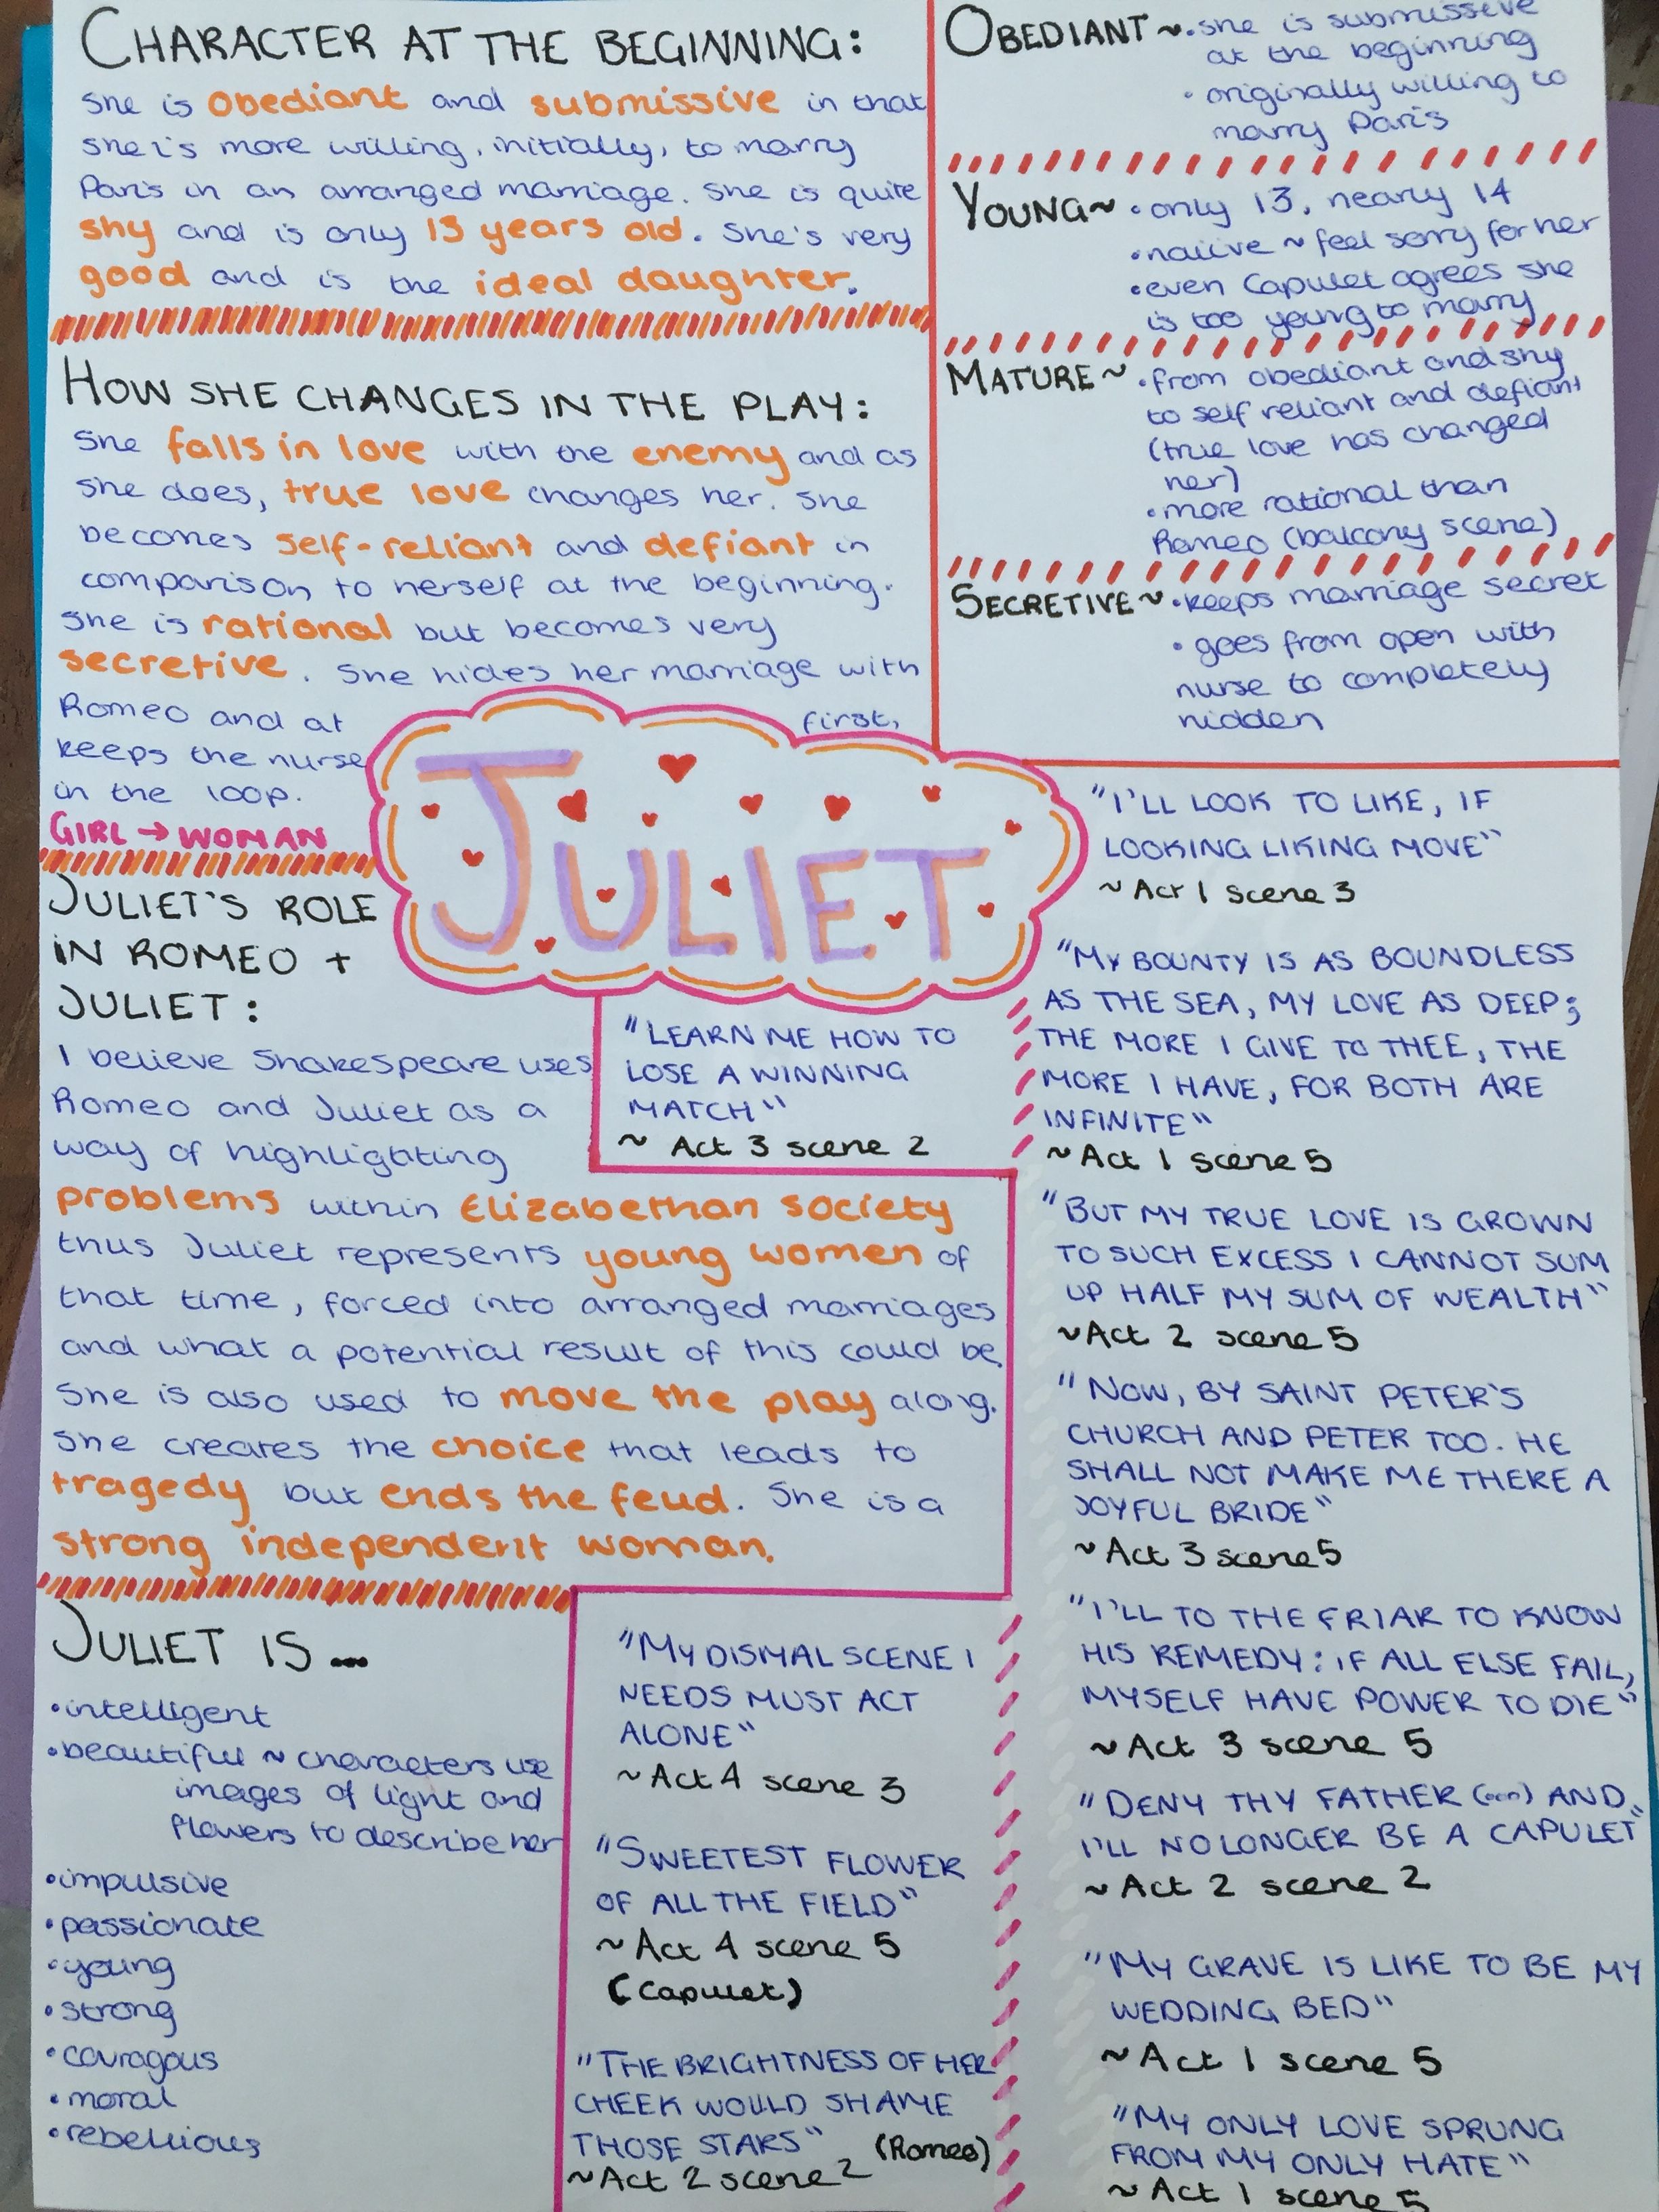 CHARACTER AT THE BEGINNING:
She is obediant and submissive in that
she is more willing, initially, to marry
Paris in an arranged marriage. She is quite
shy and is only 13 years old. She's very
good and is the ideal daughter.
HOW SHE CHANGES IN THE PLAY:
She falls in love with the enemy and as
she does, true love changes her. She
becomes self-reliant and defiant in
comparison to herself at the beginning.
She is rational but becomes very
secretive. She hides her marriage with
Romeo and at first,
keeps the nurse
in the loop.
GIRL → WOMAN
JULIET'S ROLE
IN ROMEO +
JULIET:
I believe Shakespeare uses
Romeo and Juliet as a
way of highlighting
problems within Elizabethan society
thus Juliet represents young women of
that time, forced into arranged marriages
and what a potential result of this could be.
She is also used to move the play along.
She creates the choice that leads to
tragedy but ends the feud. She is a
strong independent woman.
JULIET IS...
•intelligent
•beautiful ~ characters use
images of light and
flowers to describe her
•impulsive
•passionate
•young
•strong
•couragous
•moral
•rebellious
JULIET
OBEDIANT ~ •she is submissive
at the beginning
•originally willing to
marry Paris
YOUNG ~ •only 13, nearly 14
•naiive ~ feel sorry for her
•even Capulet agrees she
is too young to marry
MATURE ~ •from obediant and shy
to self reliant and defiant
(true love has changed
her)
•more rational than
Romeo (balcony scene)
SECRETIVE ~ •keeps marriage secret
•goes from open with
nurse to completely
hidden
"LEARN ME HOW TO
LOSE A WINNING
MATCH"
~ Act 3 scene 2
"MY DISMAL SCENE I
NEEDS MUST ACT
ALONE"
~ Act 4 scene 3
"SWEETEST FLOWER
OF ALL THE FIELD"
~ Act 4 scene 5
(Capulet)
"THE BRIGHTNESS OF HER
CHEEK WOULD SHAME
THOSE STARS" (Romeo)
~Act 2 scene 2
"I'LL LOOK TO LIKE, IF
LOOKING LIKING MOVE"
~ Act 1 scene 3
"MY BOUNTY IS AS BOUNDLESS
AS THE SEA, MY LOVE AS DEEP;
THE MORE I GIVE TO THEE, THE
MORE I HAVE, FOR BOTH ARE
INFINITE"
~ Act 1 scene 5
"BUT MY TRUE LOVE IS GROWN
TO SUCH EXCESS I CANNOT SUM
UP HALF MY SUM OF WEALTH"
~Act 2 scene 5
"NOW, BY SAINT PETER'S
CHURCH AND PETER TOO. HE
SHALL NOT MAKE ME THERE A
JOYFUL BRIDE"
~ Act 3 scene 5
"I'LL TO THE FRIAR TO KNOW
HIS REMEDY: IF ALL ELSE FAIL,
MYSELF HAVE POWER TO DIE"
~ Act 3 scene 5
"DENY THY FATHER (...) AND
I'LL NO LONGER BE A CAPULET"
~ Act 2 scene 2
"MY GRAVE IS LIKE TO BE MY
WEDDING BED"
~ Act 1 scene 5
"MY ONLY LOVE SPRUNG
FROM MY ONLY HATE"
~ Act 1 scene 5